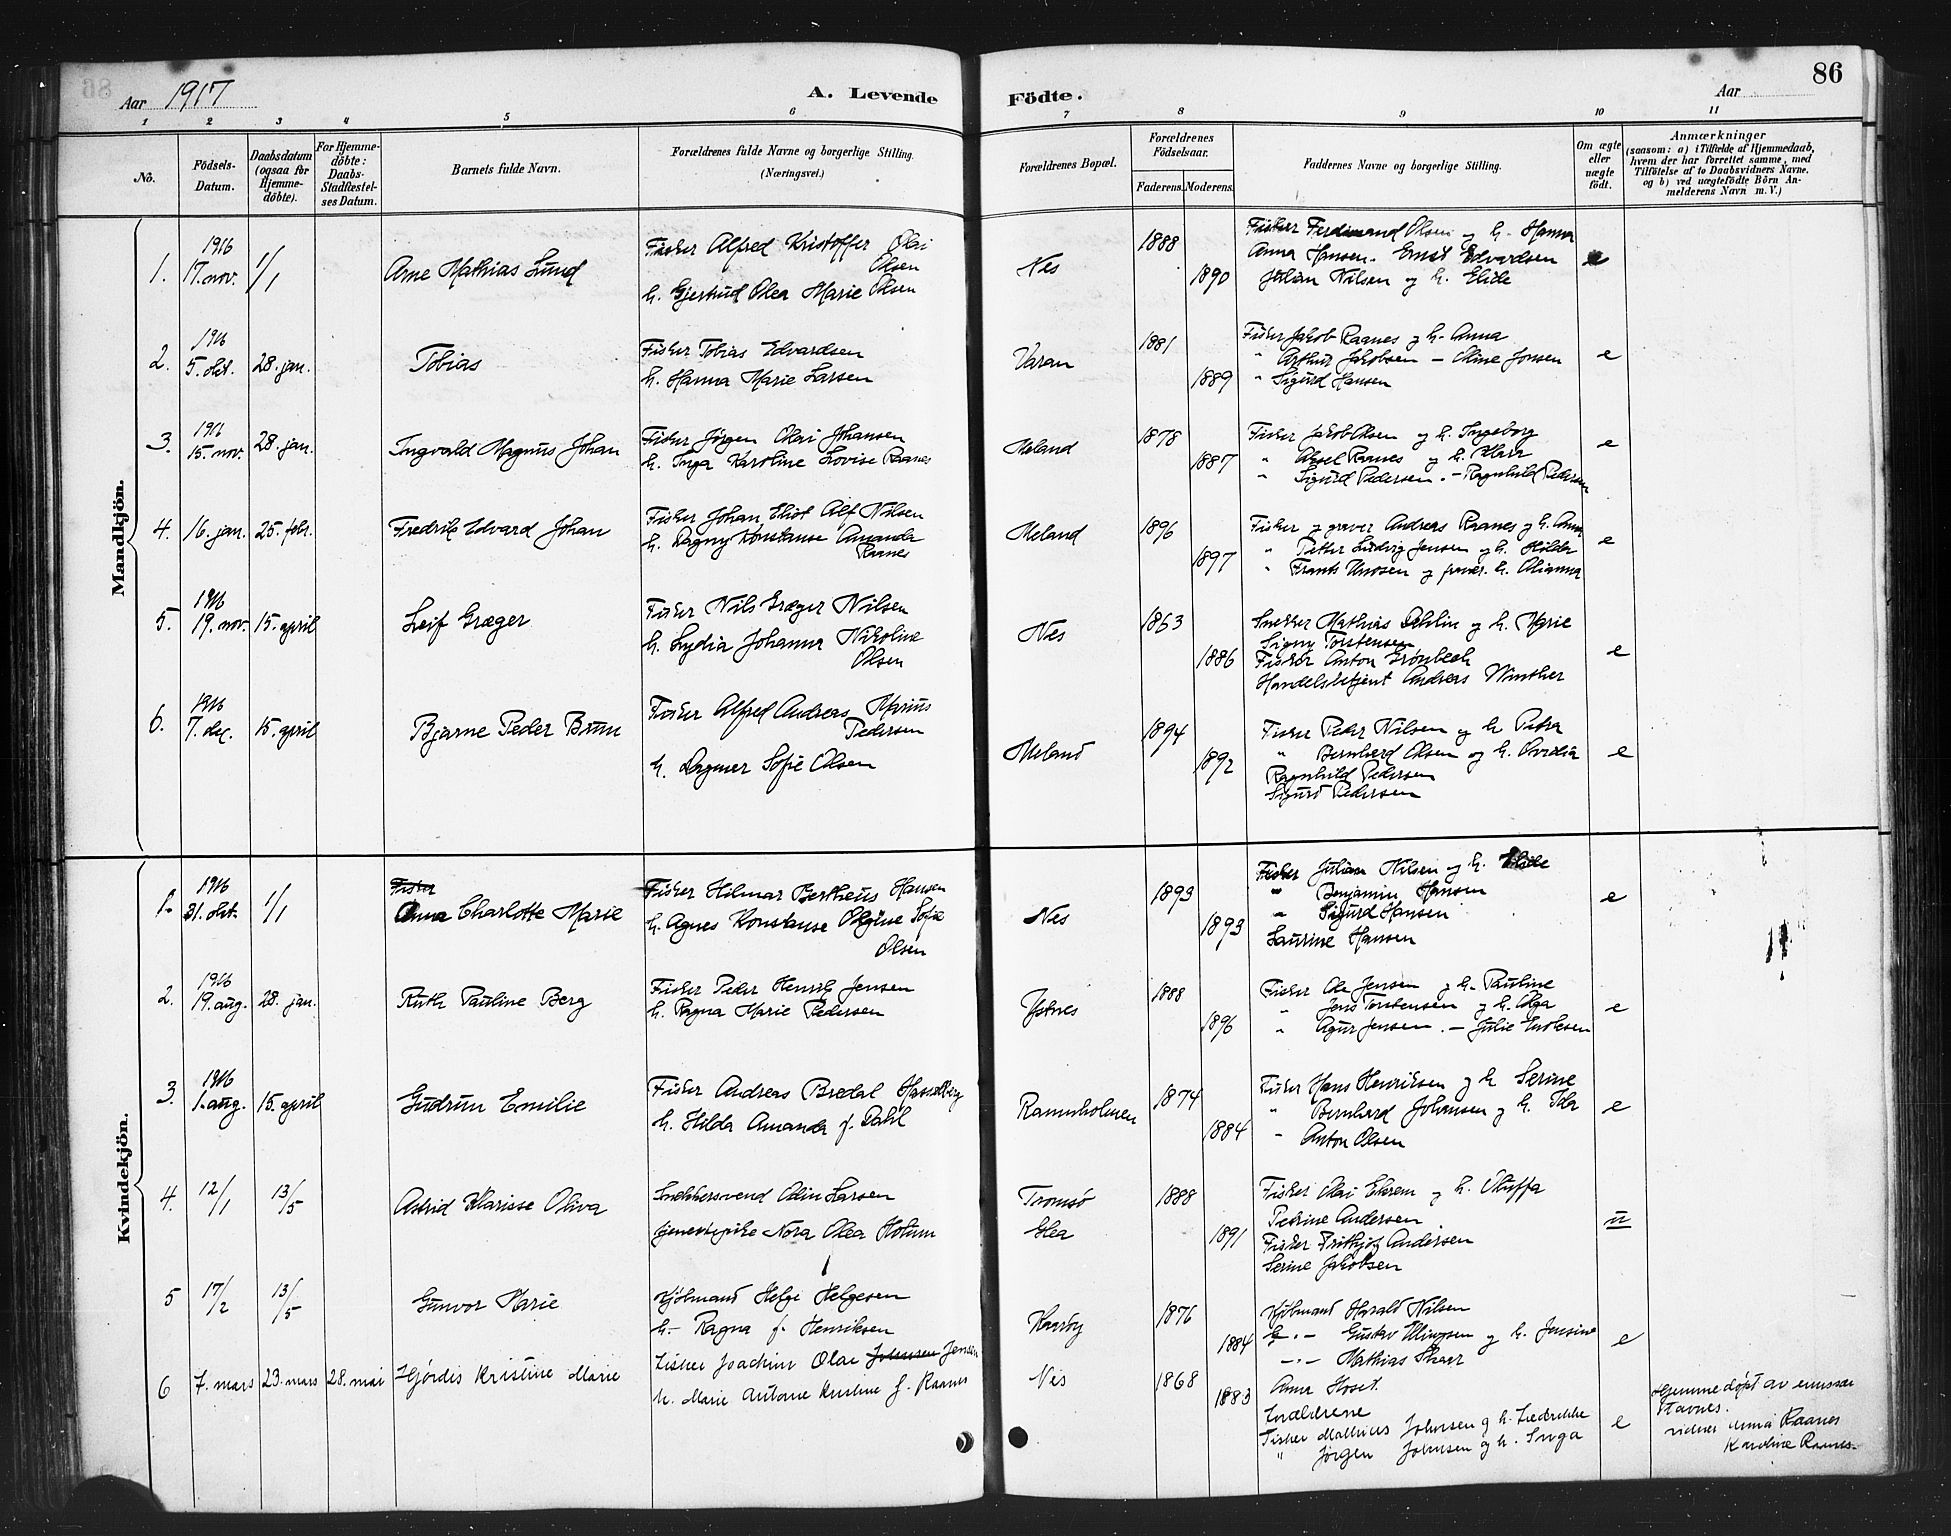 86
Aar 1917
A. Levende Födte.
Aar
1 2 3 4 5 6 7 8 9 10 11
No.
Födsels-
Datum.
Daabsdatum
(ogsaa for
Hjemme-
döbte).
For Hjemme-
döbte:
Daabs-
Stadfæstel-
ses Datum.
Barnets fulde Navn.
Forældrenes fulde Navne og borgerlige Stilling.
(Næringsvei.)
Forældrenes Bopæl.
Forældrenes
Födselsaar.
Faderens. Moderens.
Faddernes Navne og borgerlige Stilling.
Om ægte
eller
uægte
födt.
Anmærkninger
(saasom: a) i Tilfælde af Hjemmedaab,
hvem der har forrettet samme, med
Tilföielse af to Daabsvidners Navne,
og b) ved uægtefödte Börn An-
melderens Navn m. V.)
Mandkjön.
1. 1916 17. nov. 1/1 Arne Mathias Lund
Fisker Alfred Kristoffer Olai
Olsen
h. Gjertrud Olea Marie Olsen
Nes 1888 1890
Fisker Ferdinand Olsen og h. Hanna
Anna Hansen. Ernst Edvardsen
Julian Nilsen og h. Elide
e
2. 1916 5. okt. 28. jan. Tobias
Fisker Tobias Edvardsen
h. Hanna Marie Larsen
Varan 1881 1889
Fisker Jakob Raanes og h. Anna
" Arthur Jakobsen - Oline Jensen
" Sigurd Hansen
e
3. 1916 15. nov. 28. jan. Ingvald Magnus Johan
Fisker Jørgen Olai Johansen
h. Inga Karoline Lovise Raanes
Meland 1878 1887
Fisker Jakob Olsen og h. Ingeborg
" Aksel Raanes og h.
" Sigurd Pedersen. - Ragnhild Pedersen
e
4. 16. jan. 25. febr. Fredrik Edvard Johan
Fisker Johan Eliot Alf Nilsen
h. Dagny Konstanse Amanda
Raanes
Meland 1896 1897
Fisker og graver Andreas Raanes og h. Anna
" Petter Ludvig Jensen og h. Hilda
" Frants og h. Olianna
e
5. 1916 19. nov. 15. april Leif Græger
Fisker Nils Græger Nilsen
h. Lydia Johanna Nikoline
Olsen
Nes 1863 1886
Snekker Mathias Dahlin og h. Marie
Signy Torstensen
Fisker Anton Grønbech
Handelsbetjent Andreas Winther
e
6. 1916 7. dec. 15. april Bjarne Peder Brun
Fisker Alfred Andreas Marius
Pedersen
h. Dagmar Sofie Olsen
Meland 1894 1892
Fisker Peder Nilsen og h. Petra
" Bernhard Olsen og h.
Ragnhild Pedersen
Sigurd Pedersen
e
Kvindekjön.
1. 1916 31. okt. 1/1 Fisker
Anna Charlotte Marie
Fisker Hilmar Bertheus Hansen
h. Agnes Konstanse Olgine Sofie
Olsen
Nes 1893 1893
Fisker Julian Nilsen og h. Elide
" Benjamin Hansen
" Sigurd Hansen
Laurine Hansen
e
2. 1916 19. aug. 28. jan. Ruth Pauline Berg
Fisker Peder Henrik Jensen
h. Ragna Marie Pedersen
Ystnes 1888 1896
Fisker Ole Jensen og h. Pauline
" Jens Torstensen og h. Olga
" Jensen. - Julie
e
3. 1916 1. aug. 15. april Gudrun Emilie
Fisker Andreas Bredal Handberg
h. Hilda Amanda f. Dahl
Ramnholmen 1874 1884
Fisker Hans Henriksen og h. Serine
" Bernhard Johansen og h. Ida
" Anton Olsen
e
4. 12/1 13/5 Astrid Klarisse Oliva
Snekkersvend Odin Larsen
tjenestepike Nora Olea Holum
Tromsø
1888 1891
Fisker Olai og h.
Petrine Andersen
Fisker Fritjof Andersen
Serine Jakobsen
u
5 17/2 13/5 Gunvor Marie
Kjøbmand Helge Helgesen
h. - Ragna f. Henriksen
Kaarøy 1876 1884
Kjøbmand Harald Nilsen
-"- Gustav og h. Jensine
-"- Mathias
Anna
e
6 7. mars 23. mars 28. mai Hjørdis Kristine Marie
Fisker Joachim Olai Johnsen Jensen
h. Marie Antone Kristine f. Raanes
Nes 1868 1883
Forældrene
Fisker Mathias Johnsen og h. Fredrikke
" Jørgen Johnsen og h. Inga
e
Hjemmedøpt av emissær
Stavnes.
vidner Anna Raanes
Karoline Raanes.